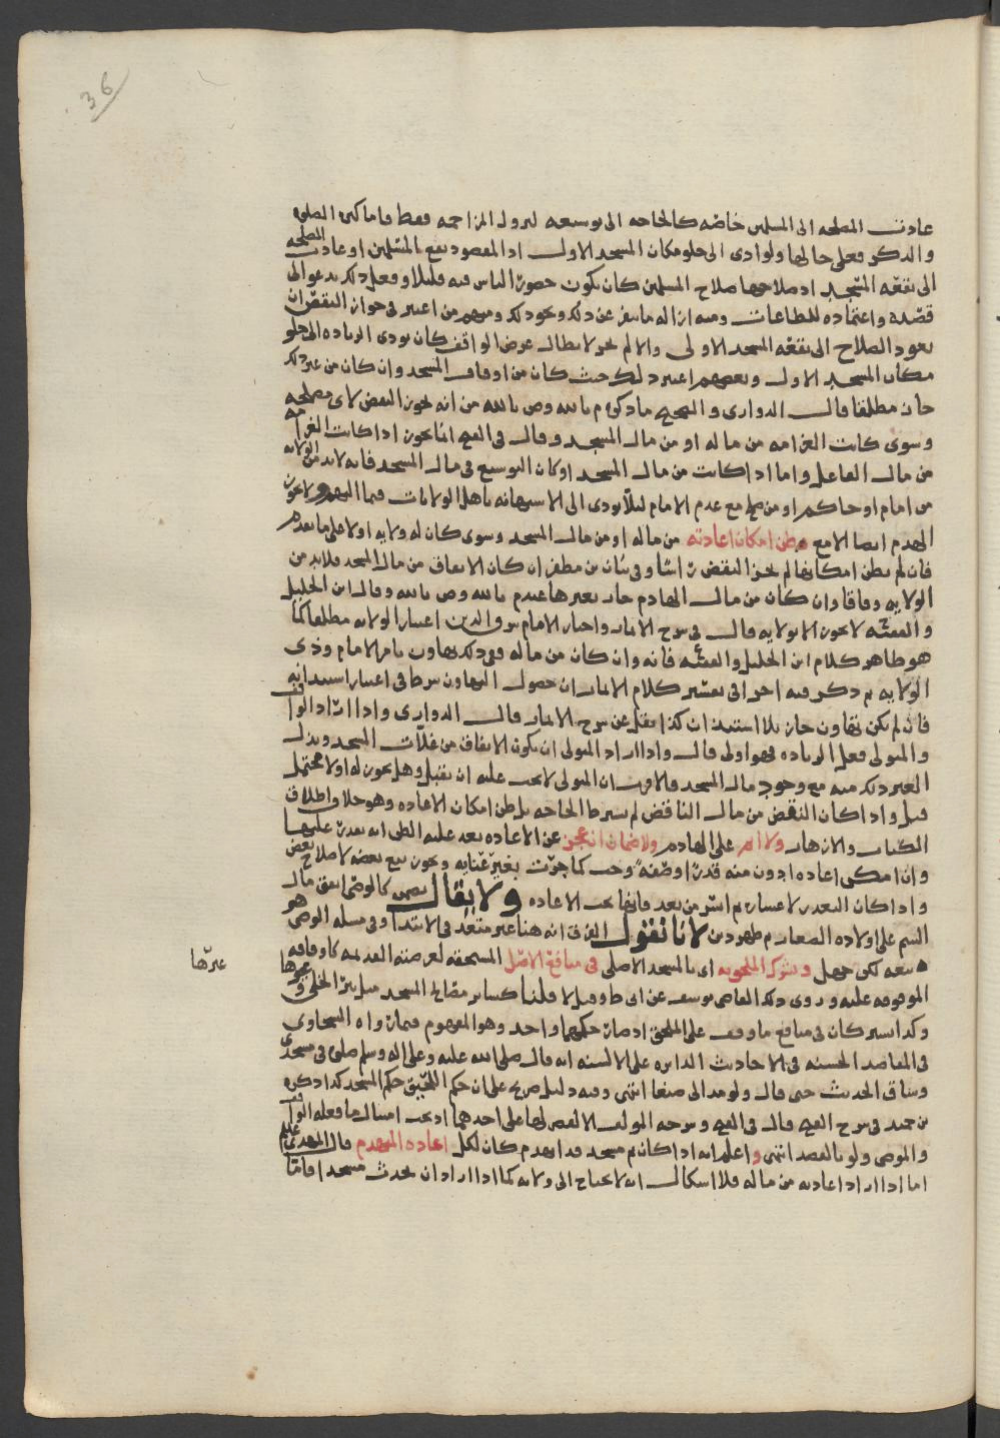 36
عادت المصلحه الى المسلمين خاصه كالحاجه الى توسيعه لنزول المزاحمه فقط فاما كثره الصلوه
والذكر فعلى حالها ولو ادى الى خلو مكان المسجد الاول اذ المقصود نفع المسلمين او عادت المصلحه
الى نفعه المسجد اذ صلاحها صلاح المسلمين كان يكون حضور الناس فيه قليلا وفعل ذلك يدعو الى
قصده واعتماده للطاعات ومنه ازاله ما ينفر عن ذلك ونحو ذلك ومنهم من اعتبر في جواز النقض ان
يعود الصلاح الى نفعه المسجد الاولى والا لم يجز لابطال غرض الواقف كان يودى الزياده الى خلو
مكان المسجد الاول وبعضهم اعتبر ذلك حيث كان من اوقاف المسجد وان كان من غير ذلك
جاز مطلقا قال الدوارى والصحيح ما ذكره م بالله وص بالله من انه يجوز النقض لاى مصلحه
وسوى كانت الغرامه من ماله او من مال المسجد وقال فى الغيث انما يجوز اذا كانت الغرامه
من مال الفاعل واما اذا كانت من مال المسجد او كان التوسيع فى مال المسجد فانه لابد من الولايه
من امام او حاكم او من صلح مع عدم الامام ليلا يودى الى الاستهانه باهل الولايات فيما اليهم ولا يجوز
الهدم ايضا الا مع ظن امكان اعادته من ماله او من مال المسجد وسوى كان له ولايه او لا على ما تقدم
فان لم يظن امكانها لم يجز النقض
الولايه وفاقا وان كان من مال الهادم جاز بغيرها عندم بالله وص بالله وقال ابن الخليل
لا يجوز الا بولايه قال فى شرح الاثمار واختار الامام شرف الدين اعتبار الولايه مطلقا كما
هو ظاهر كلام ابن الخليل فانه وان كان من ماله ففى ذلك تهاون بامر الامام وذى
الولايه ثم ذكر فيه اخرا فى تفسير كلام الاثمار ان حصول التهاون شرط فى اعتبار استيذانه
فان لم يكن تهاون جاز بلا استيذان كذا نقل عن شرح الاثمار قال الدوارى واذا اراد الواقف
والمتولى فعل الزياده فهو اولى قال واذا اراد المتولى ان يكون الانفاق من غلات المسجد وبذل
الغير ذلك منه مع وجود مال المسجد فالاقرب ان المتولى لا يجب عليه ان يقبل وهل يجوز له او لا محتمل
قيل واذا كان النقض من مال الناقض لم يشرط الحاجه بل ظن امكان الاعاده وهو خلاف اطلاق
الكتاب والازهار ولا اثم على الهادم ولا ضمان ان عجز عن الاعاده بعد غلبه الظن انه يقدر عليها
وان امكن اعاده ادون منه قدرا او صفه وجب كما جرت بغير عنايه ويجوز بيع بعضه لاصلاح بعض
واذا كان التعذر لاعساره ثم ايسر من بعد فانها تجب الاعاده ولا يقال يضمن كالوصى انفق مال
اليتيم على اولاده الصغار ثم ظهر دين لانا نقول الفرق انه هنا غير متعد فى الابتدا وفى مسله الوصى هو
متعد لكن جهل وتشرك الملحوقه اى بالمسجد الاصلى فى منافع الاصل المستحقه لعرصته القديمه كاوقافه
الموقوفه عليه وروى ذلك القاضى يوسف عن ابى ط وقيل لا قلنا كساير مقابله المسجد مثل بئر الخلى وغيرها
وكذا يشركان فى منافع ما وقف على الملحق اذ صار حكمهما واحد وهو المفهوم فيما رواه السخاوى
فى المقاصد الحسنه فى الاحاديث الدايره على الالسنه انه قال صلى الله عليه وعلى اله وسلم صلوه فى مسجدى
وساق الحديث حتى قال ولو مد الى صنعا انتهى وفيه دليل صريح على ان حكم اللحيق حكم المسجد كذا ذكره
بن حميد فى شرح الفتح قال فى الفتح وشرحه المولف الا لقصر لها على احدهما اذ يجب امتثال ما فعله الواقف
والموصى ولو بالقصد انتهى واعلم انه اذا كان ثم مسجد قد انهدم كان لكل اعاده المنهدم قال المهدى علم
اما اذا اراد اعادته من ماله فلا اشكال انه لا يحتاج الى ولايه كما اذا اراد ان يحدث مسجدا فاما
غيرها